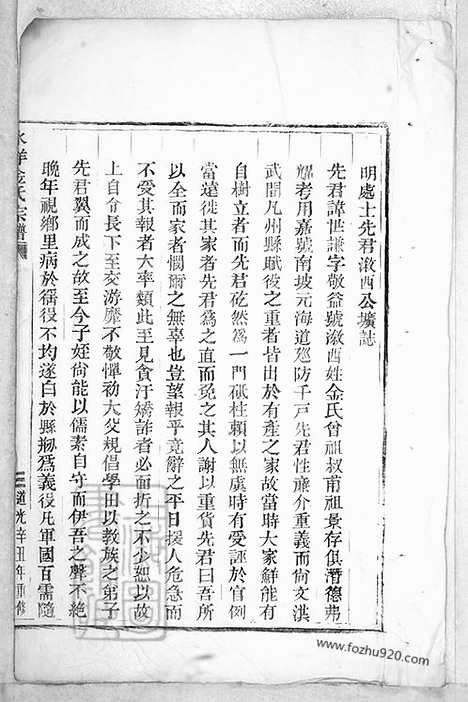 明處士先君漵西公壙誌
先君諱世謙字敬益號漵西姓金氏曾祖叔甫祖景存俱潛德弗
耀考用嘉號南坡元海道廵防千戸先君性廉介重義而尚文淇
武間凡州縣賦役之重者皆出於有產之家故當時大家鮮能有
自樹立者而先君矻然爲一門砥柱賴以無虞時有受誣於官例
當遠徙其家者先君爲之直而免之其人謝以重貨先君曰吾所
以全而家者憫爾之無辜也豈望報乎竟辭之平日援人危急而
不受其報者大率類此至見貪汙矯詐者必面折之不少恕以故
上自官長下至交游靡不敬憚初大父規倡學田以教族之弟子
先君翼而成之故至今子姪尚能以儒素自守而伊吾之聲不絶
晚年視鄉里病於徭役不均遂白於縣剏爲義役凡軍國百需隨
洋金氏宗譜
道光辛丑年重修
www.fozhu920.com